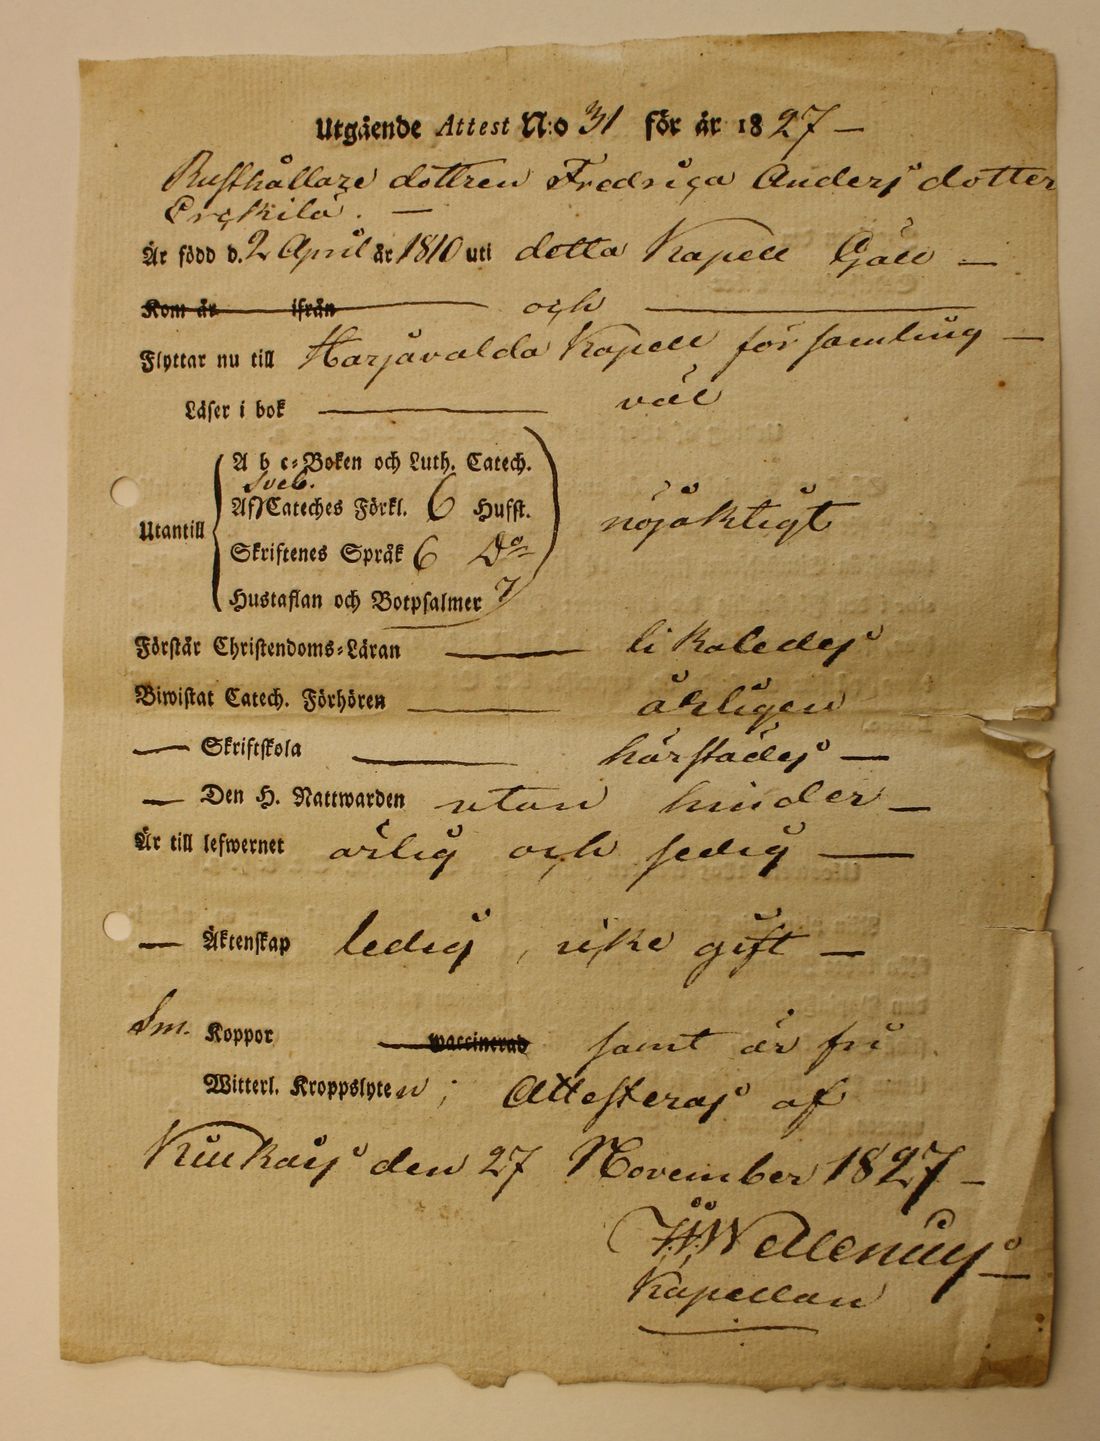 Utgående Attest N:o 31 för år 1827 —
Rusthållare dottren Fredrica Anders dotter
Erckilä. —
Är född d. 2 April år 1810 uti detta Kapell Gäll —
Kom år ifrån och
Flyttar nu till Harjavalda Kapell församling —
Läser i bok — väl
A b c-Boken och Luth. Catech.
Sveb.
Utantill Af Cateches Förkl. 6 Hufst. nöjaktigt
Skriftenes Språk 6 Do
Hustaflan och Botpsalmer 7
Förstår Christendoms-Läran — likaledes
Biwistat Catech. Förhören — årligen
— Skriftskola — härstädes —
— Den H. Nattwarden utan hinder —
Är till lefwernet ärlig och sedig —
— Äktenskap ledig, icke gift —
Koppor waccinerad samt är fri
Witterl. Kroppslyten; Attesteras af
Kiukais den 27 November 1827 —
Wallenius
Kapellan